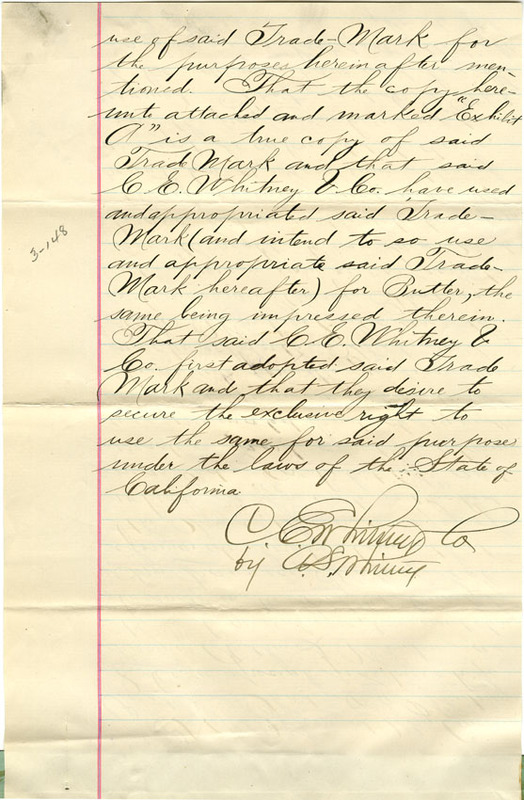 use of said Trade-Mark for
the purposes hereinafter men-
tioned. That the copy here-
unto attached and marked "Exhibit
A" is a true copy of said
Trade Mark and that said
C. E. Whitney & Co. have used
and appropriated said Trade-
Mark (and intend to so use
and appropriate said Trade-
Mark hereafter) for Butter, the
same being impressed therein.
That said C. E. Whitney &
Co. first adopted said Trade
Mark and that they desire to
secure the exclusive right to
use the same for said purpose
under the laws of the State of
California
3-148
C E Whitney Co
by